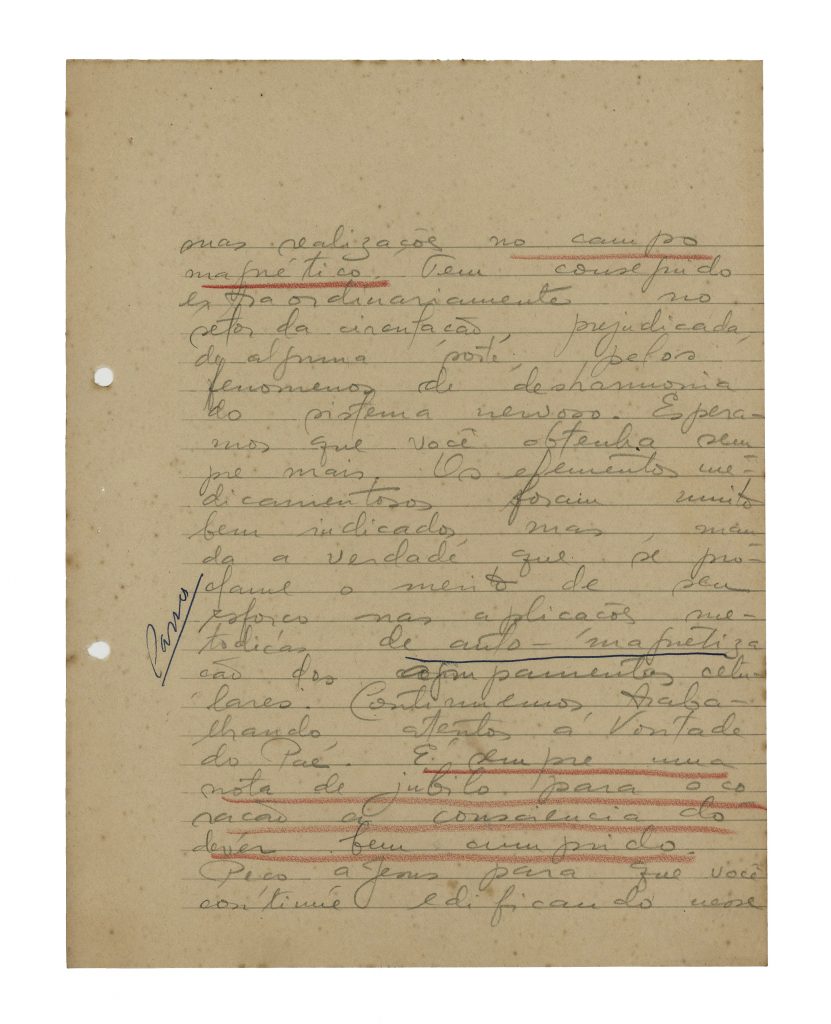 suas realizações no campo
magnético. Tem conseguido
extraordinariamente no
setor da circulação, prejudicada,
de alguma sorte, pelos
fenomenos de desharmonia
do sistema nervoso. Espera-
mos que você obtenha sem
pre mais. Os elementos me-
dicamentosos foram muito
bem indicados mas, man
da a verdade que se pro-
clame o merito de seu
esforço nas aplicações me-
todicas de auto-magnetiza
ção dos agrupamentos celu-
lares. Continuemos traba-
lhando atentos á Vontade
do Pae. É sempre uma
nota de jubilo para o co
ração a consciencia do
dever bem cumprido.
Peço a Jesus para que você
continúe edificando nesse